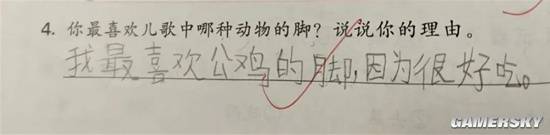 4. 你最喜欢儿歌中哪种动物的脚？说说你的理由。
我最喜欢公鸡的脚,因为很好吃。
GAMERSKY